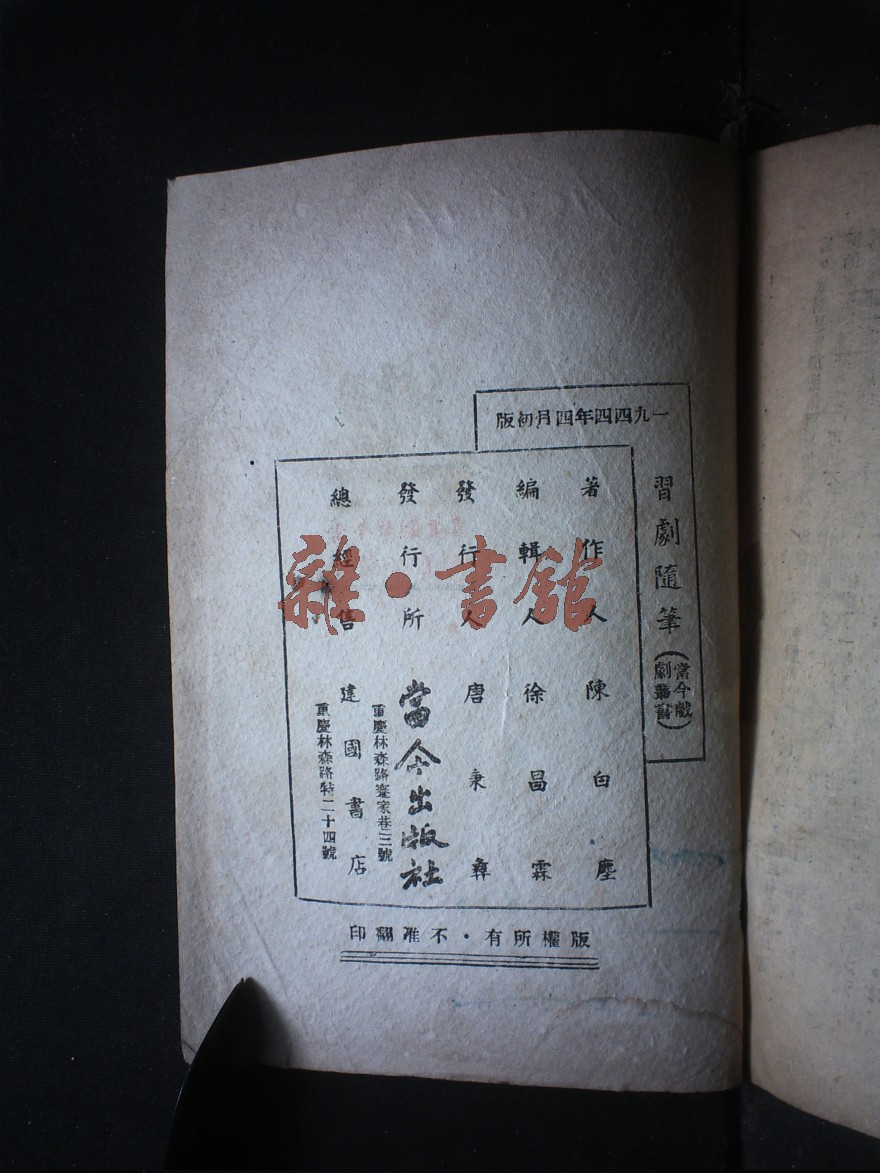 一九四四年四月初版
習劇隨筆（當今戲劇叢書）
著作人 陳白塵
編輯人 徐昌霖
發行人 唐秉彝
發行所 當今出版社
重慶林森路蹇家巷三號
總經售 建國書店
重慶林森路特二十四號
版權所有・不准翻印
雜・書館